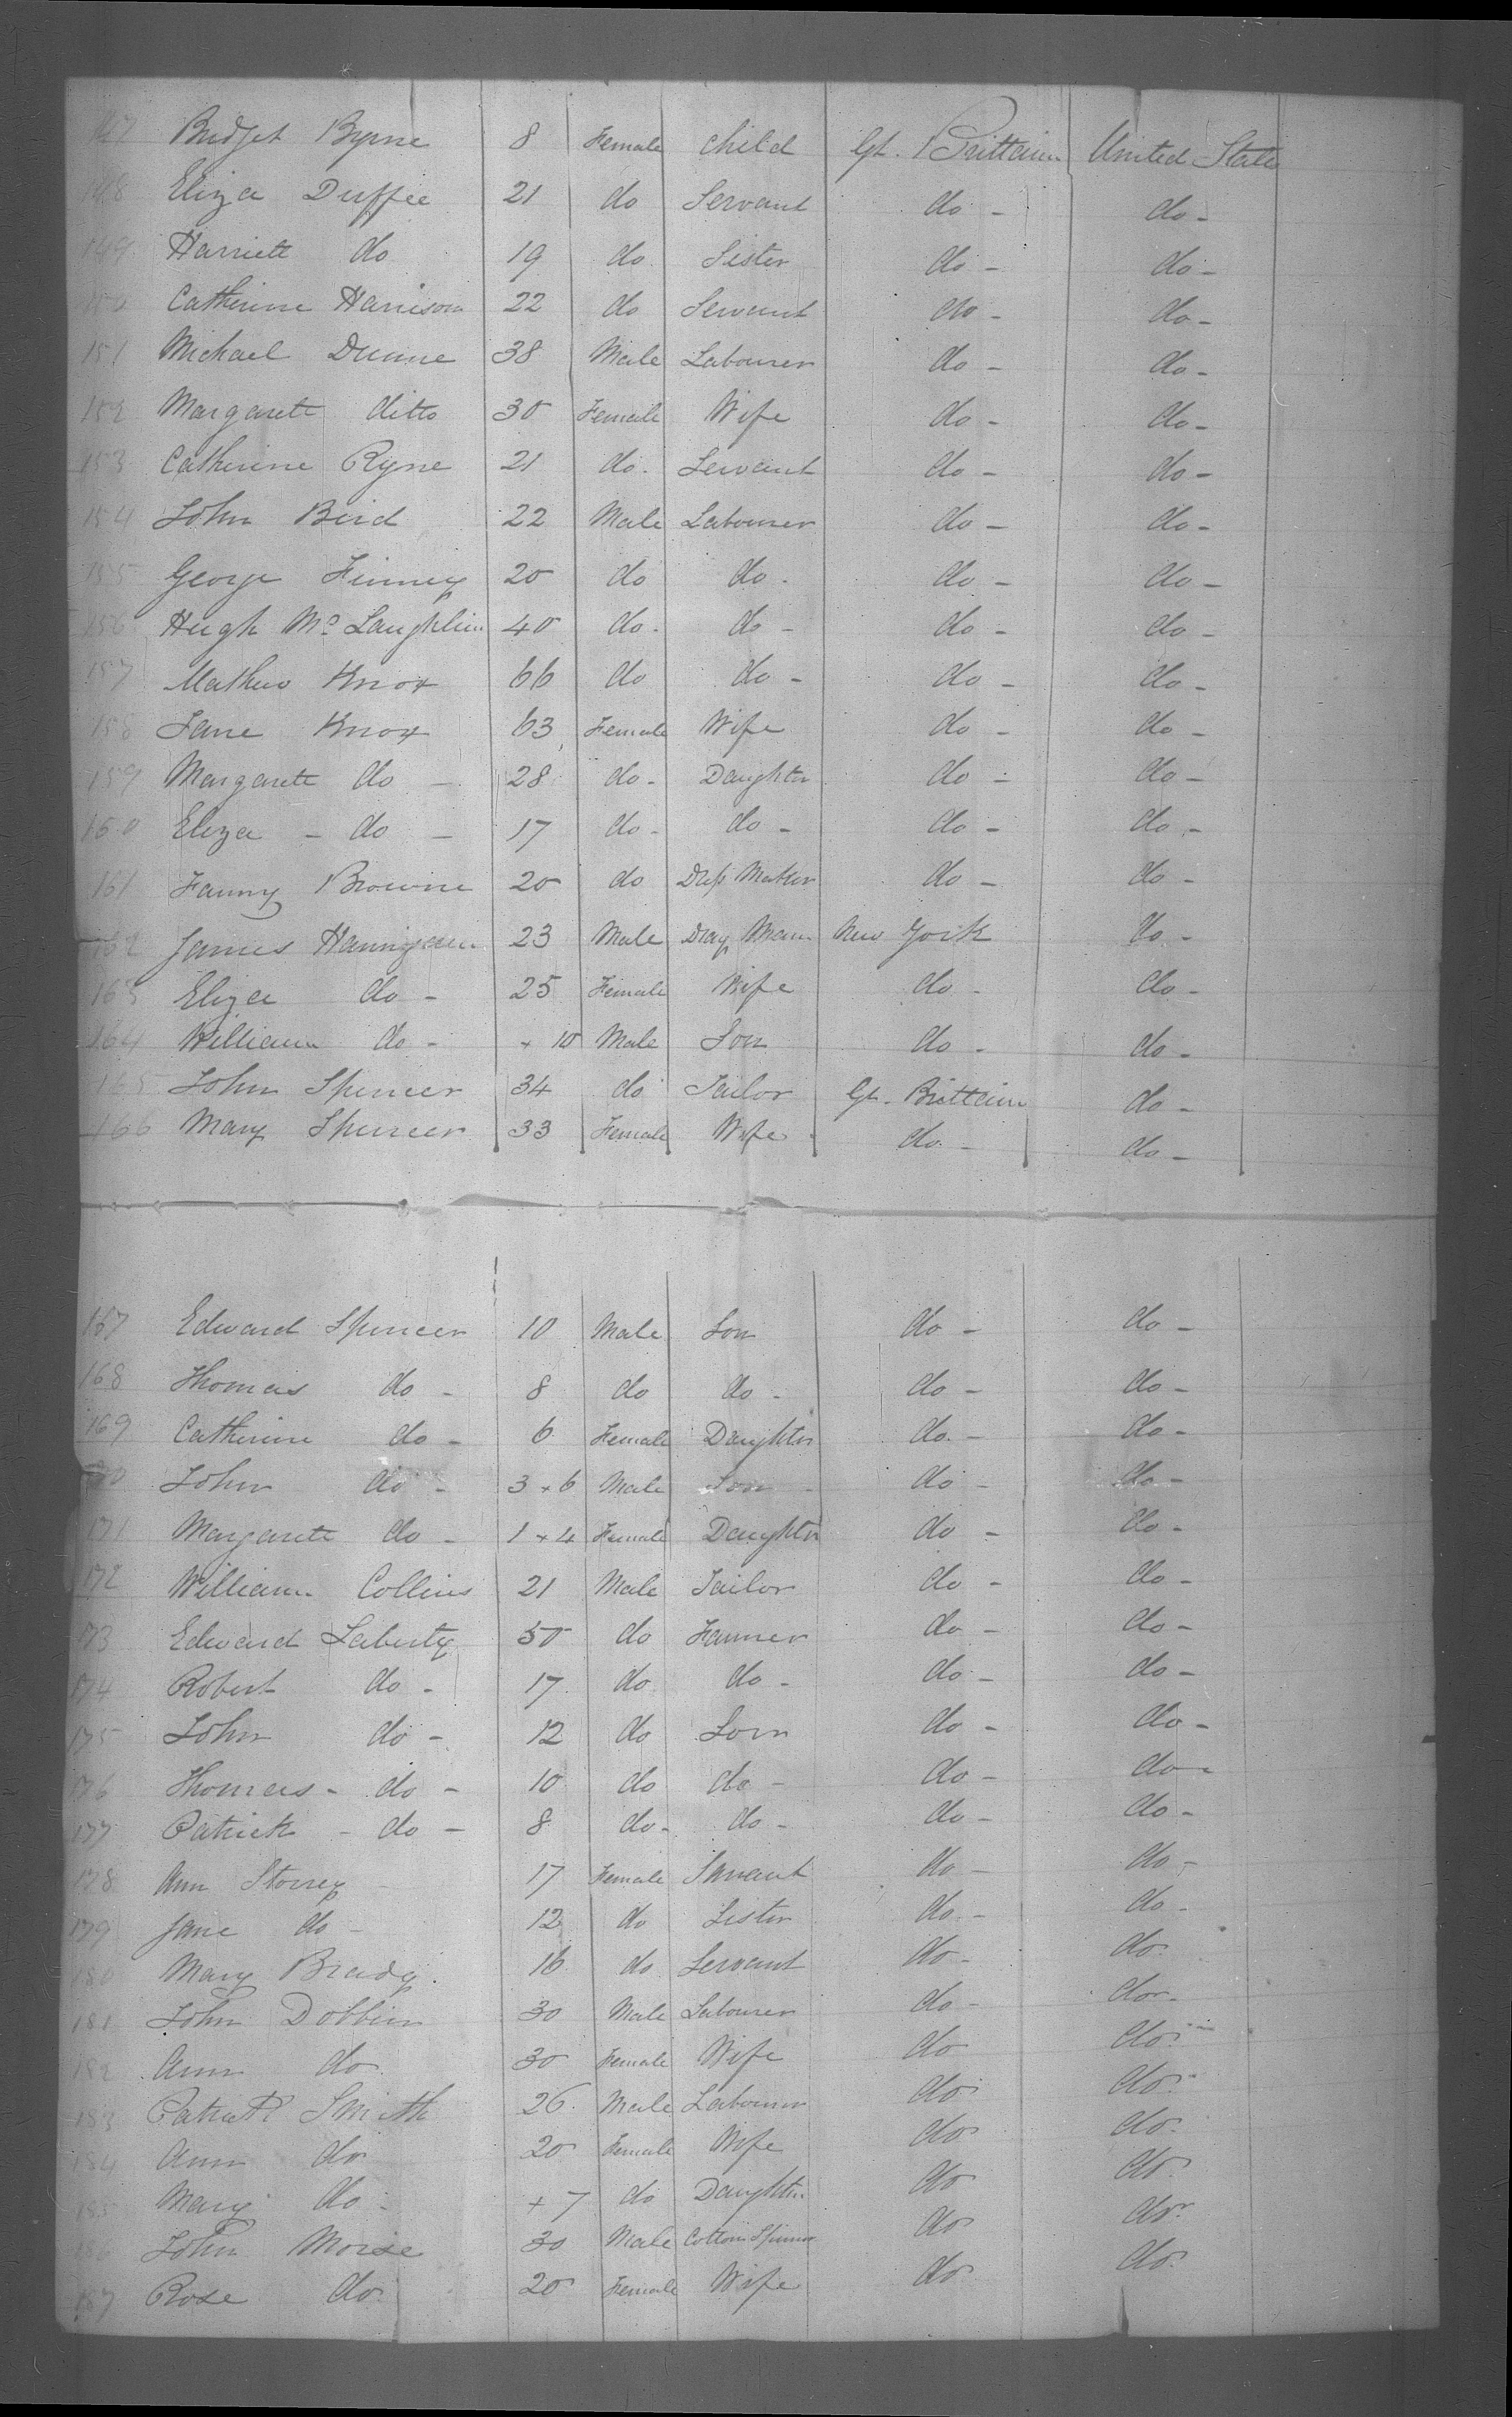 147 Bridget Byrne 8 Female child Gt. Brittain United State
148 Eliza Duffee 21 do Servant do - do -
149 Harriett do 19 do Sister do - do -
150 Catherine Harrison 22 do Servant do - do -
151 Michael Dunne 38 Male Labourer do - do -
152 Margarett ditto 30 Female Wife do - do -
153 Catherine Ryne 21 do. Servant do - do -
154 John Bird 22 Male Labourer do - do -
155 George Finney 20 do do - do - do -
156 Hugh Mc Laughlin 40 do. do - do - do -
157 Mathew Knox 66 do do - do - do -
158 Jane Knox 63 Female Wife do - do -
159 Margarett do - 28 do - Daughter do - do -
160 Eliza - do - 17 do - do - do - do -
161 Fanny Browne 20 do Dress Maker do - do -
162 James Hannigan 23 Male Dray Man New York do -
163 Eliza do - 25 Female Wife do - do -
164 William do - + 10 Male Son do - do -
165 John Spencer 34 do Tailor Gt. Brittain do -
166 Mary Spencer 33 Female Wife do - do -
167 Edward Spencer 10 Male Son do - do -
168 Thomas do - 8 do do - do - do -
169 Catherine do - 6 Female Daughter do - do -
170 John do - 3 + 6 Male Son do - do -
171 Margarett do - 1 + 4 Female Daughter do - do -
172 William Collins 21 Male Tailor do - do -
173 Edward Laberty 50 do Farmer do - do -
174 Robert do - 17 do do - do - do -
175 John do - 12 do Son do - do -
176 Thomas - do - 10 do do - do - do -
177 Patrick - do - 8 do - do - do - do -
178 Ann Storey 17 Female Servant do - do -
179 Jane do - 12 do Sister do - do -
180 Mary Brady 16 do Servant do - do
181 John Dobbin 30 Male Labourer do - do -
182 Ann do 30 Female Wife do do
183 Patrick Smith 26 Male Labourer do do
184 Ann do 20 Female Wife do do
185 Mary do - + 7 do Daughter do do
186 John Morse 30 Male Cotton Spinner do do
187 Rose do 20 Female Wife do do